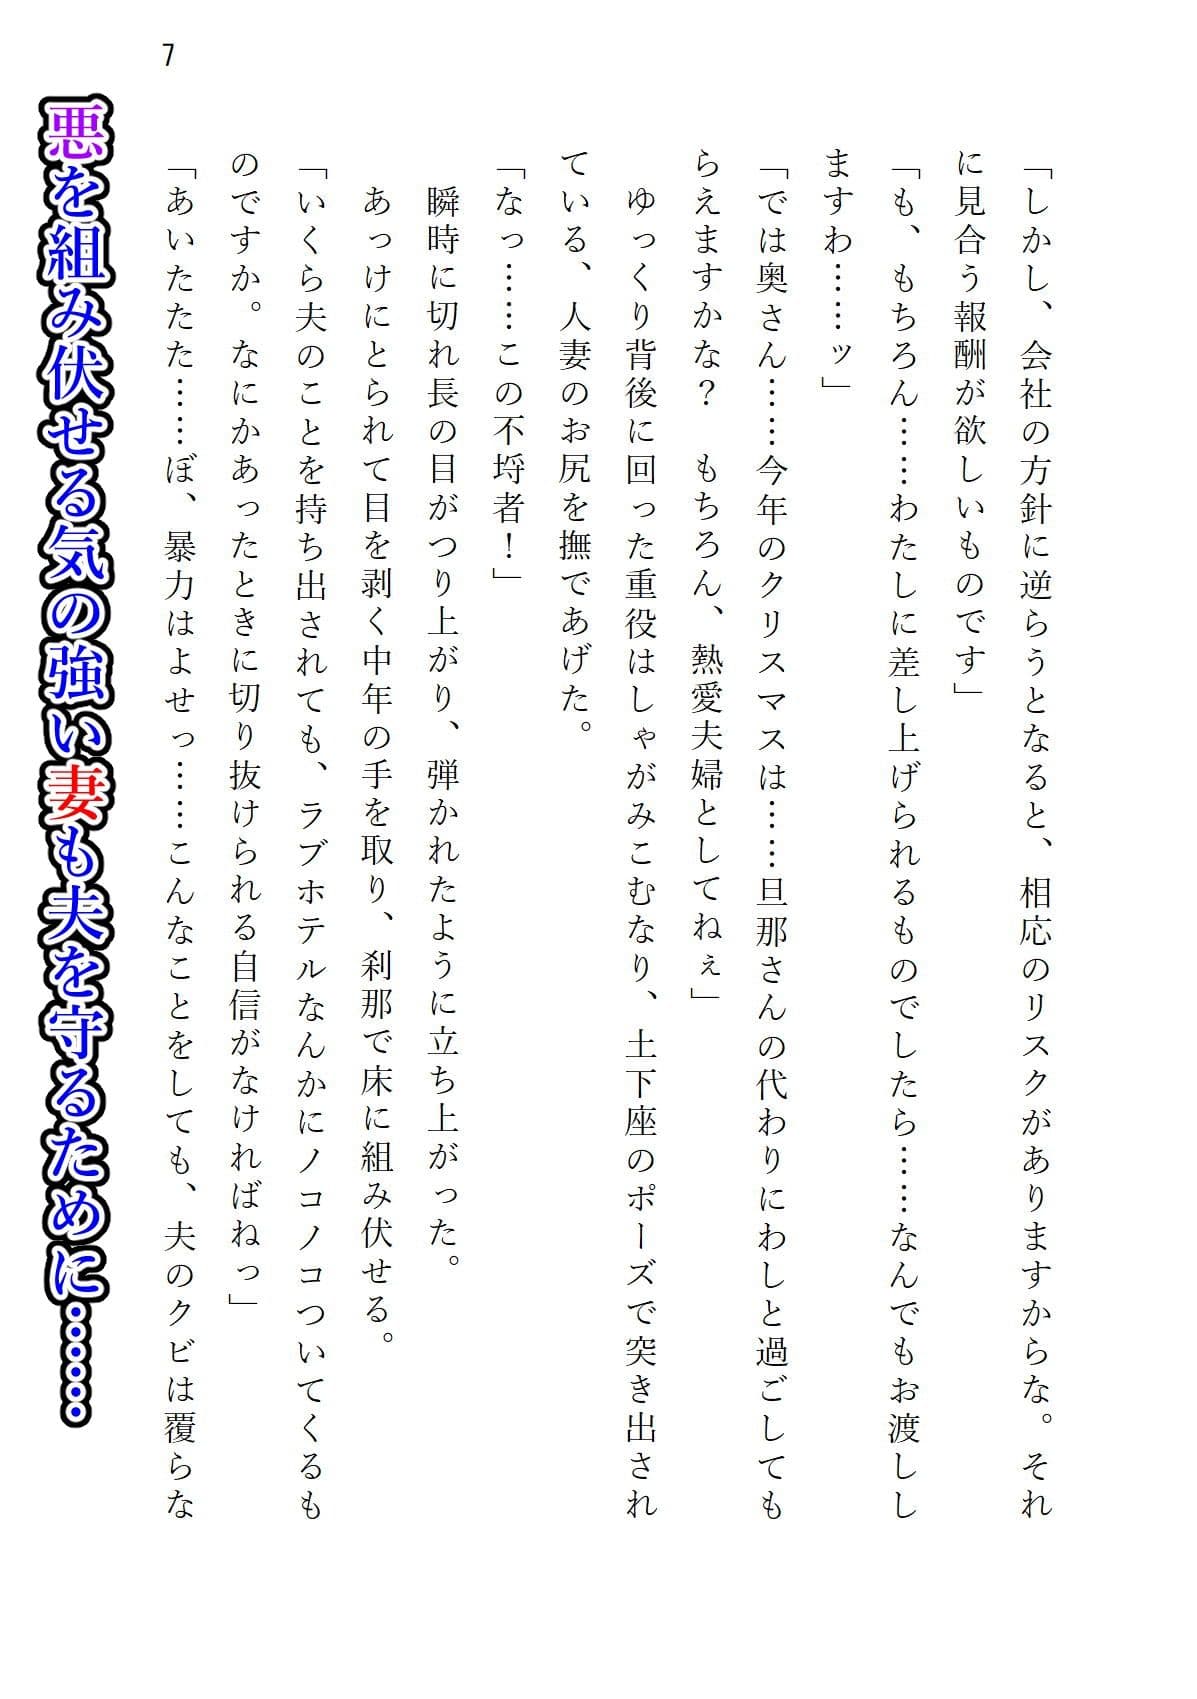 7
「しかし、会社の方針に逆らうとなると、相応のリスクがありますからな。それ
に見合う報酬が欲しいものです」
「も、もちろん……わたしに差し上げられるものでしたら……なんでもお渡しし
ますわ……ッ」
「では奥さん……今年のクリスマスは……旦那さんの代わりにわしと過ごしても
らえますかな？　もちろん、熱愛夫婦としてねぇ」
　ゆっくり背後に回った重役はしゃがみこむなり、土下座のポーズで突き出され
ている、人妻のお尻を撫であげた。
「なっ……この不埒者！」
　瞬時に切れ長の目がつり上がり、弾かれたように立ち上がった。
　あっけにとられて目を剥く中年の手を取り、刹那で床に組み伏せる。
「いくら夫のことを持ち出されても、ラブホテルなんかにノコノコついてくるも
のですか。なにかあったときに切り抜けられる自信がなければねっ」
「あいたたた……ぼ、暴力はよせっ……こんなことをしても、夫のクビは覆らな
悪を組み伏せる気の強い妻も夫を守るために……